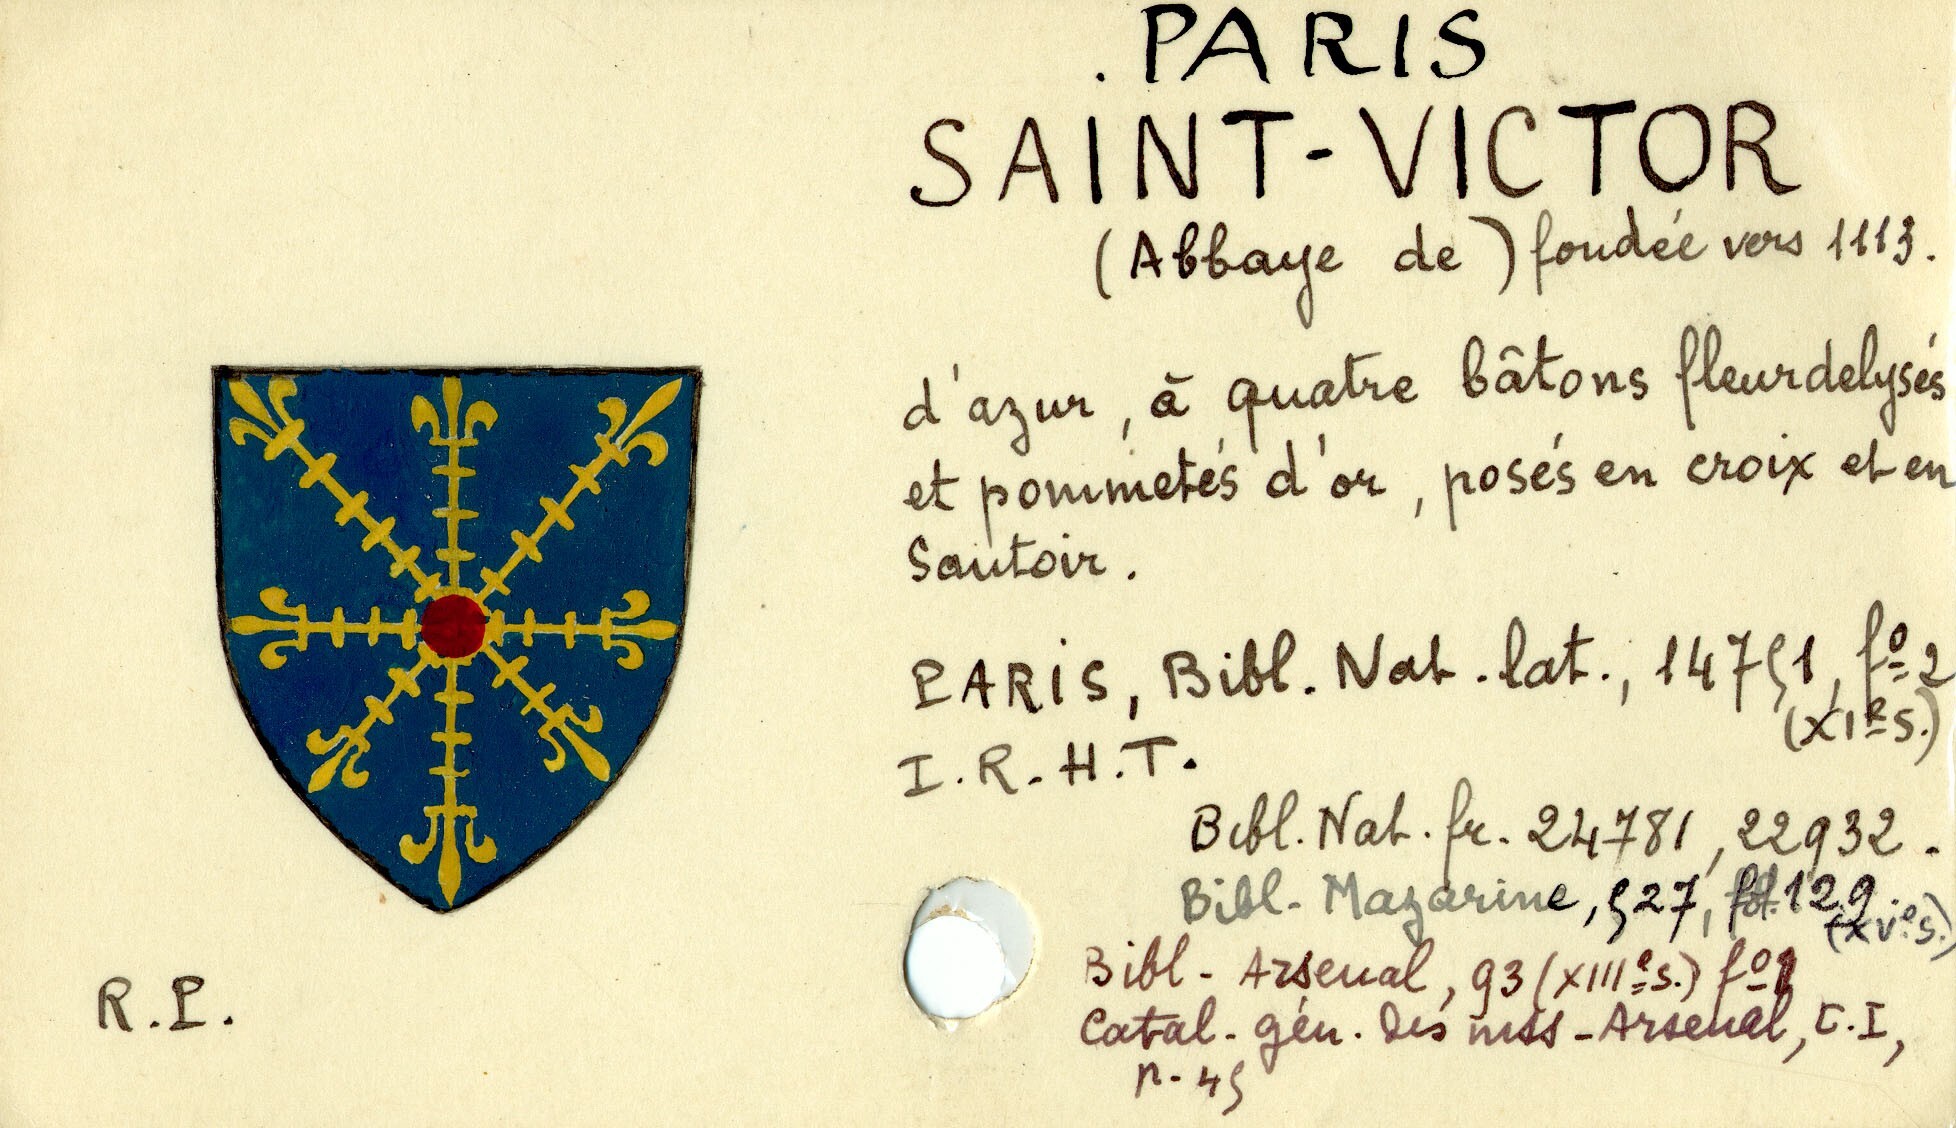 . PARIS
SAINT-VICTOR
(Abbaye de) fondée vers 1113.
d'azur, à quatre bâtons fleurdelysés
et pommetés d'or, posés en croix et en
Sautoir.
PARIS, Bibl. Nat. lat., 14751, fº 2
(XIe s.)
I.R.H.T.
Bibl. Nat. fr. 24781, 22932.
Bibl. Mazarine, 527, 129.
(XVe s.)
Bibl. Arsenal, 93 (XIIIe s.) fº
Catal. gén. des mss - Arsenal, T. I,
p. 45
R.P.